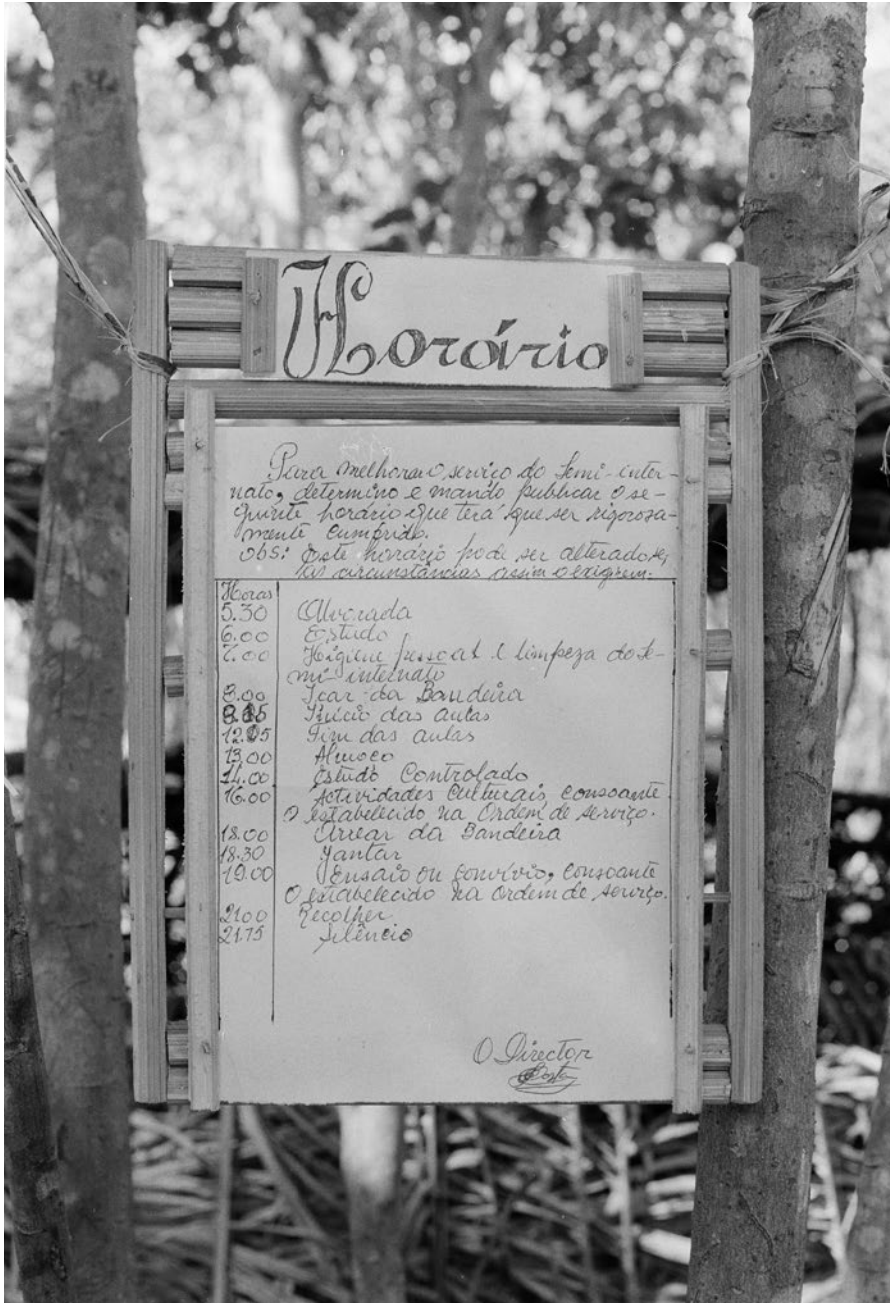 Horário
Para melhorar o serviço do Semi-inter-
nato, determino e mando publicar o se-
guinte horário que terá que ser rigorosa-
mente cumprido.
obs: Este horário pode ser alterado se,
as circunstâncias assim o exigirem.
Horas
5.30 Alvorada
6.00 Estudo
7.00 Higiene pessoal e limpeza do Se-
mi-internato
8.00 Içar da Bandeira
8.15 Início das aulas
12.05 Fim das aulas
13.00 Almoco
14.00 Estudo Controlado
16.00 Actividades Culturais, consoante
O estabelecido na Ordem de serviço.
18.00 Arrear da Bandeira
18.30 Jantar
19.00 Ensaio ou convívio, consoante
O estabelecido na Ordem de serviço.
21.00 Recolher
21.75 Silêncio
O Director